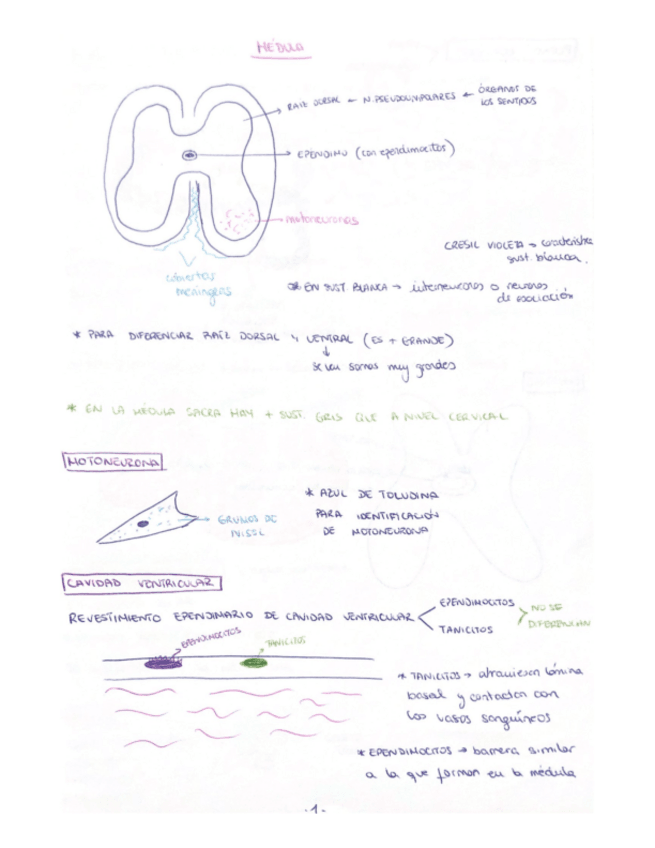 MÉDULA
RAÍZ DORSAL ← N. PSEUDOUNIPOLARES ← ÓRGANOS DE
LOS SENTIDOS
EPÉNDIMO (con ependimocitos)
motoneuronas
cubiertas
meníngeas
CRESIL VIOLETA → característica
sust. blanca.
EN SUST. BLANCA → interneuronas o neuronas
de asociación
* PARA DIFERENCIAR RAÍZ DORSAL Y VENTRAL (ES + GRANDE)
↓
se ven somas muy grandes
* EN LA MÉDULA SACRA HAY + SUST. GRIS QUE A NIVEL CERVICAL
MOTONEURONA
GRUMOS DE
NISSL
* AZUL DE TOLUDINA
PARA IDENTIFICACIÓN
DE MOTONEURONA
CAVIDAD VENTRICULAR
REVESTIMIENTO EPENDIMARIO DE CAVIDAD VENTRICULAR
EPENDIMOCITOS
TANICITOS
NO SE
DIFERENCIAN
EPENDIMOCITOS
TANICITOS
* TANICITOS → atraviesan lámina
basal y contactan con
los vasos sanguíneos
* EPENDIMOCITOS → barrera similar
a la que forman en la médula
-1-